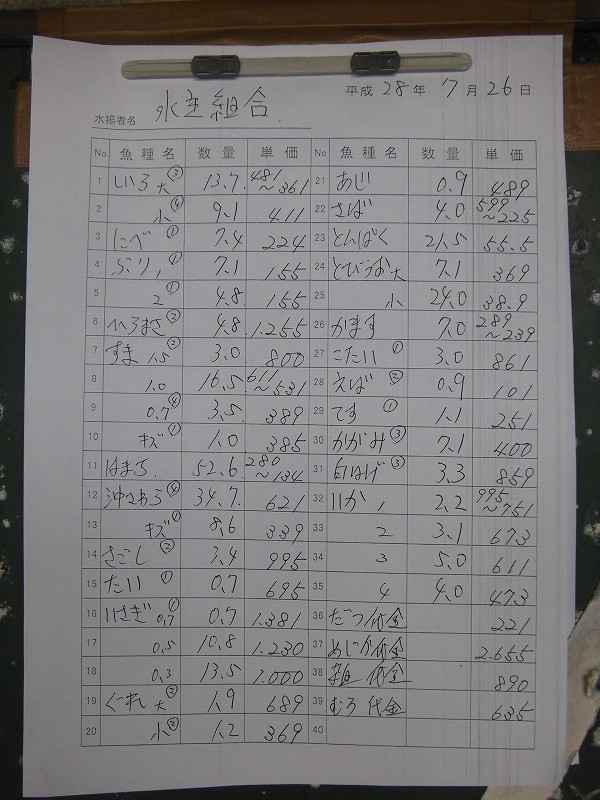 平成 28 年 7 月 26 日
水揚者名 水主組合
No 魚種名 数量 単価
1 しいら大③ 13.7 481~361
2 小④ 9.1 411
3 にべ① 7.4 224
4 ぶり1① 7.1 155
5 2① 4.8 155
6 ひらまさ② 4.8 1.255
7 すま 1.5② 3.0 800
8 1.0 16.5 611~531
9 0.7④ 3.5 389
10 キズ① 1.0 385
11 はまち 52.6 280~134
12 沖さわら④ 34.7 621
13 キズ① 8.6 339
14 さごし② 3.4 995
15 たい① 0.7 695
16 いさぎ 0.7① 0.7 1.381
17 0.5 10.8 1.230
18 0.3 13.5 1.000
19 ぐれ大③ 1.9 689
20 小② 1.2 369
No 魚種名 数量 単価
21 あじ 0.9 489
22 さば 4.0 599~225
23 とんぼく 21.5 55.5
24 とびうお大 7.1 369
25 小 24.0 38.9
26 かます 7.0 289~239
27 こたい① 3.0 861
28 えば② 0.9 101
29 てす① 1.1 251
30 かがみ③ 7.1 400
31 白はげ③ 3.3 859
32 いか1 2.2 995~751
33 2 3.1 673
34 3 5.0 611
35 4 4.0 473
36 だつ代金 221
37 めじか代金 2.655
38 雑代金 890
39 むろ代金 635
40